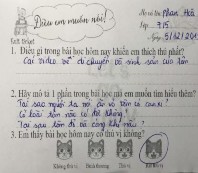 Điều em muốn nói!
Họ và tên: Phan Hoà
Lớp: 3/5
Ngày: 5/12/201
1. Điều gì trong bài học hôm nay khiến em thích thú nhất?
Cái video về di chuyển vô sinh sản của tôm
2. Hãy mô tả 1 phần trong bài học mà em muốn tìm hiểu thêm?
Tại sao người ta nói ăn vỏ tôm có canxi?
Có loài tôm nào có độc không?
Tại sao tôm đi bò cong khi nấu?
3. Em thấy bài học hôm nay có thú vị không?
Không thú vị Bình thường Thú vị Rất thú vị